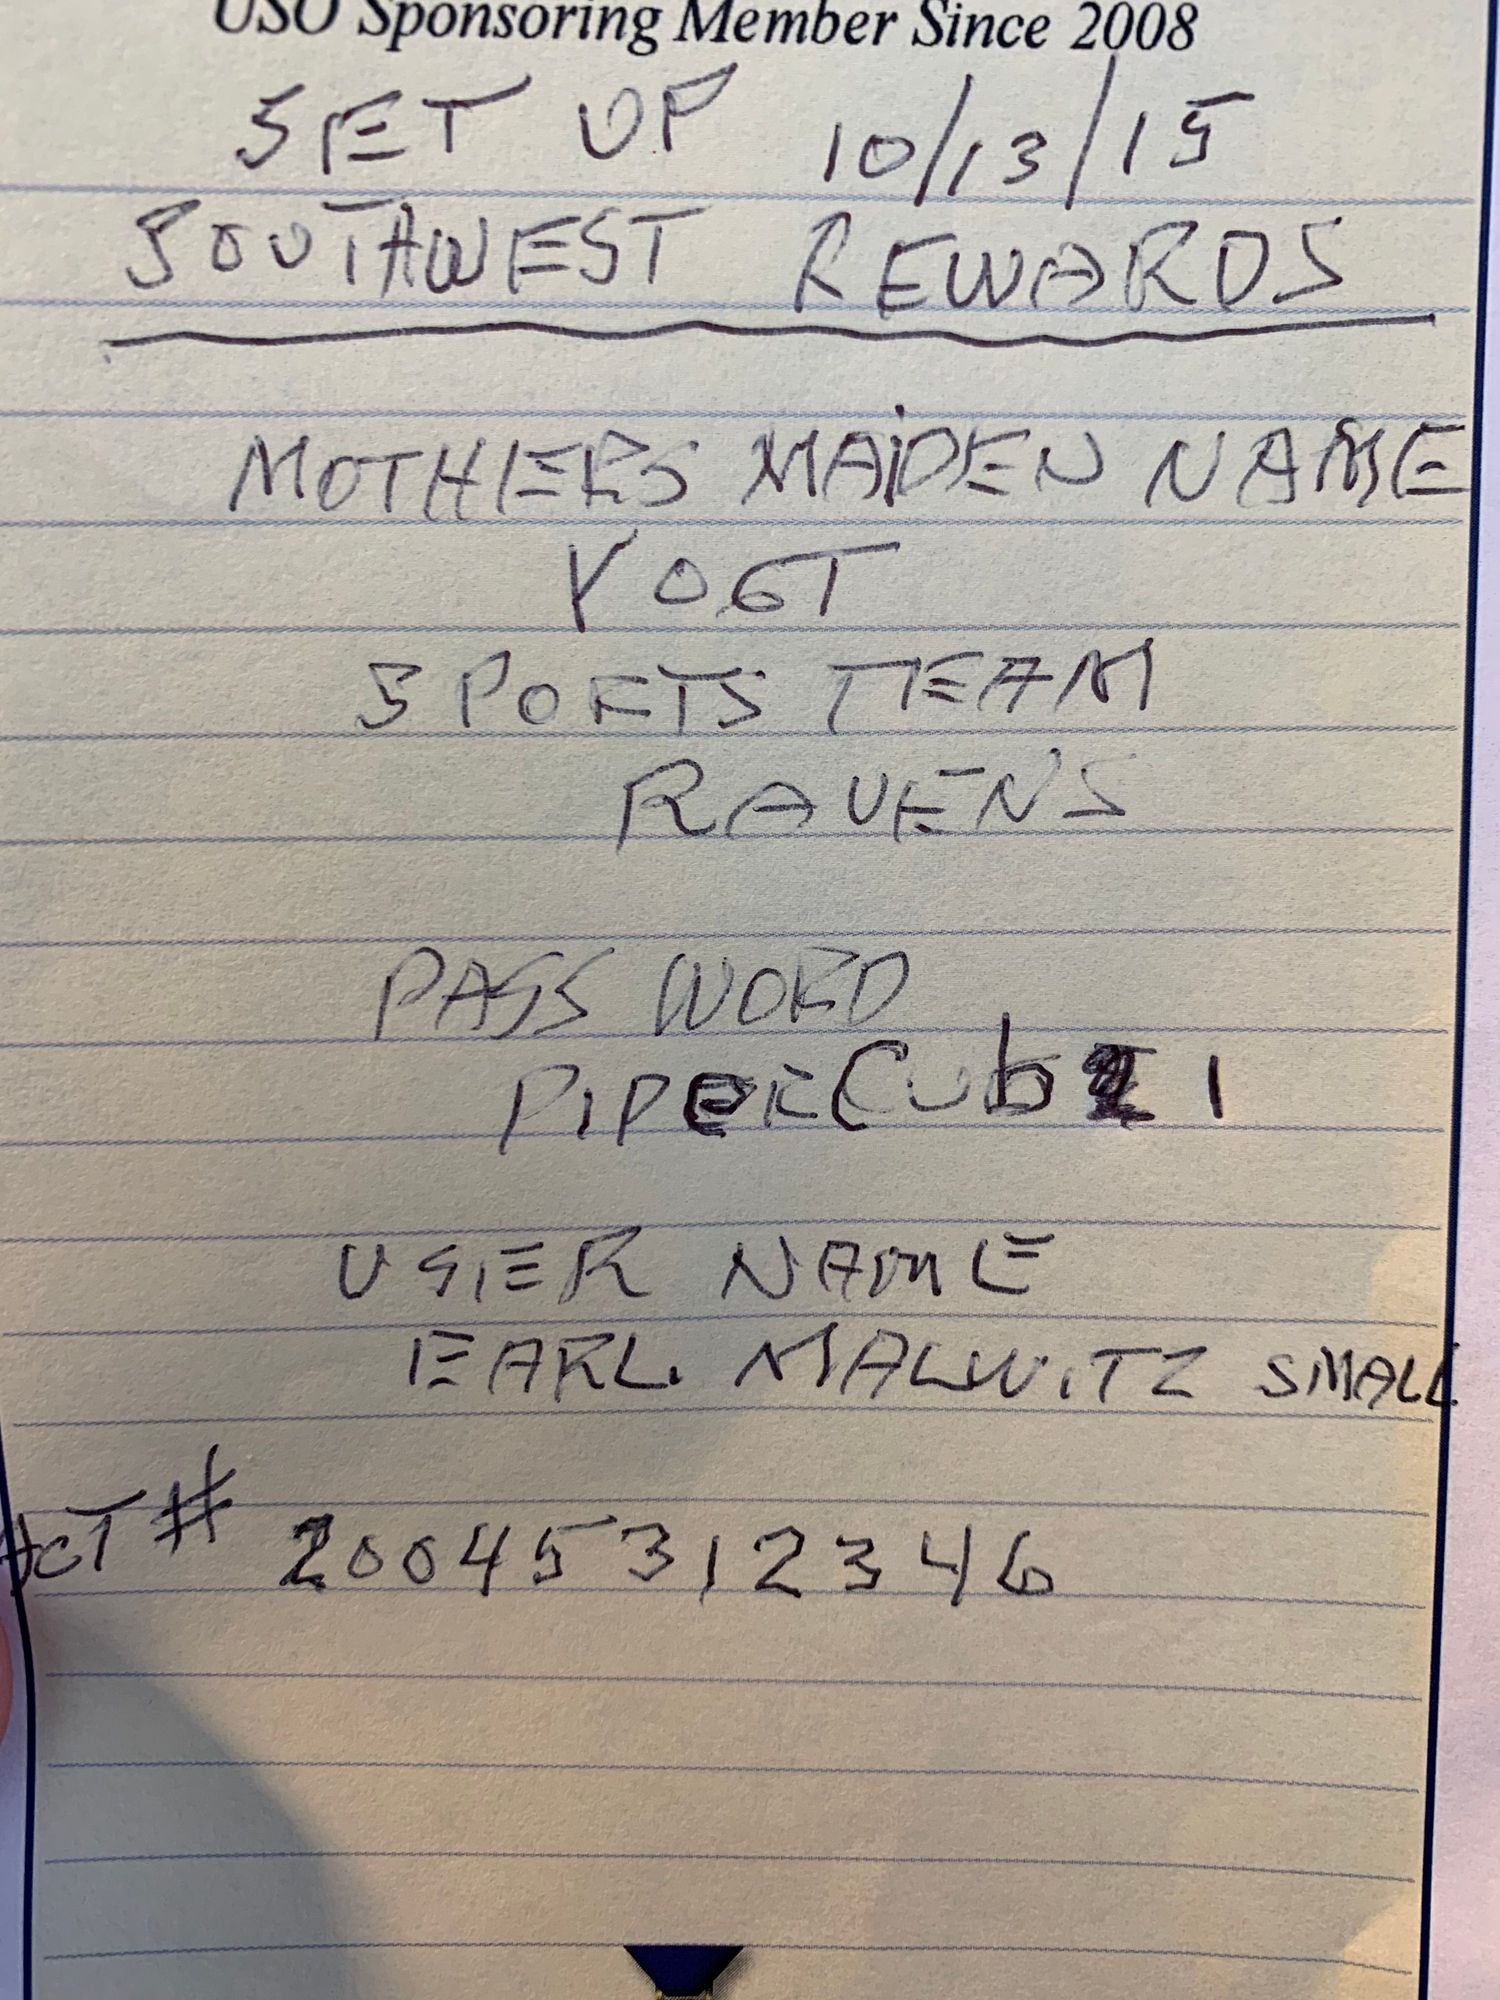 USO Sponsoring Member Since 2008
SET UP 10/13/15
SOUTHWEST REWARDS
MOTHERS MAIDEN NAME
YOGT
SPORTS TEAM
RAVENS
PASS WORD
PIPERCub 1
USER NAME
EARL. MALWITZ SMALL
ACT # 20045312346